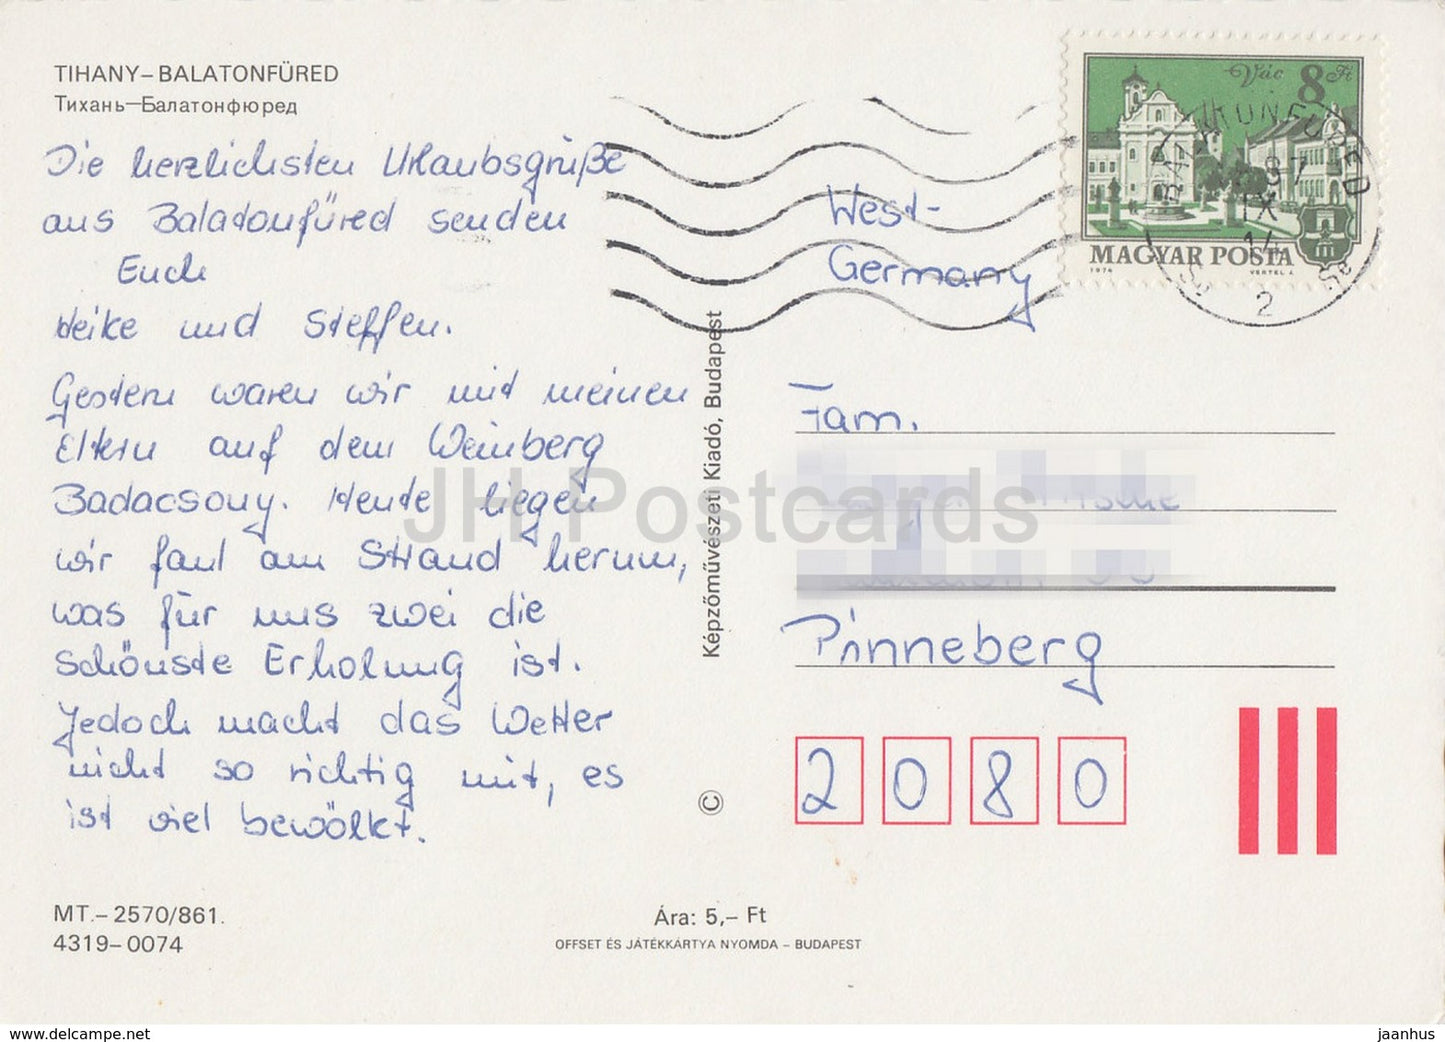 TIHANY–BALATONFÜRED
Тихань—Балатонфюред
Die herzlichsten Urlaubsgrüße
aus Baladonfüred senden
Euch
Heike und Steffen.
Gestern waren wir mit meinen
Eltern auf dem Weinberg
Badacsony. Heute liegen
wir faul am Strand herum,
was für uns zwei die
schönste Erholung ist.
Jedoch macht das Wetter
nicht so richtig mit, es
ist viel bewölkt.
MT.–2570/861.
4319–0074
Ára: 5,– Ft
OFFSET ÉS JÁTÉKKÁRTYA NYOMDA – BUDAPEST
Képzőművészeti Kiadó, Budapest
©
Vác 8 Ft
MAGYAR POSTA
1974 VERTEL J.
87
IX
14
2
West-
Germany
Fam.
Pinneberg
2080
JH Postcards
https://www.delcampe.net
jaanhus